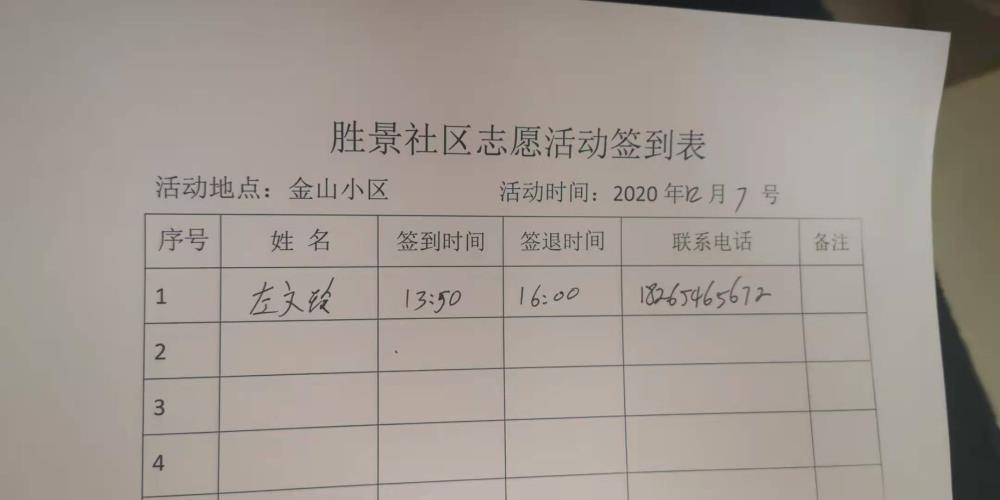 胜景社区志愿活动签到表
活动地点：金山小区 活动时间：2020年12月7号
序号 姓名 签到时间 签退时间 联系电话 备注
1 左文玲 13:50 16:00 18265465672
2
3
4